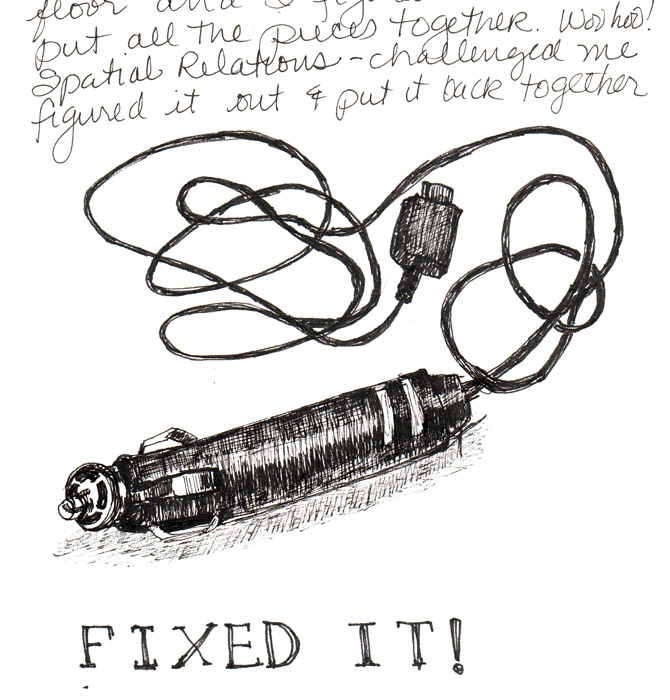 floor and I
put all the pieces together. Woo hoo!
Spatial Relations - challenged me
figured it out & put it back together
FIXED IT!